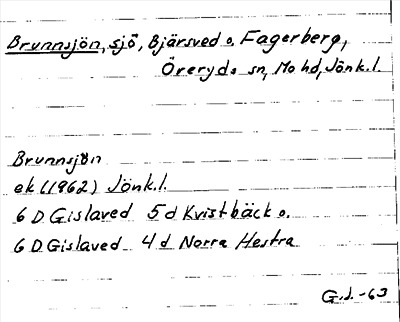 Brunnsjön, sjö, Bjärsved o. Fagerberg,
Öreryds sn, Mo hd, Jönk.l.
Brunnsjön
ek (1962) Jönk.l.
6 D Gislaved 5 d Kvistbäck o.
6 D Gislaved 4 d Norra Hestra
G.J. -63